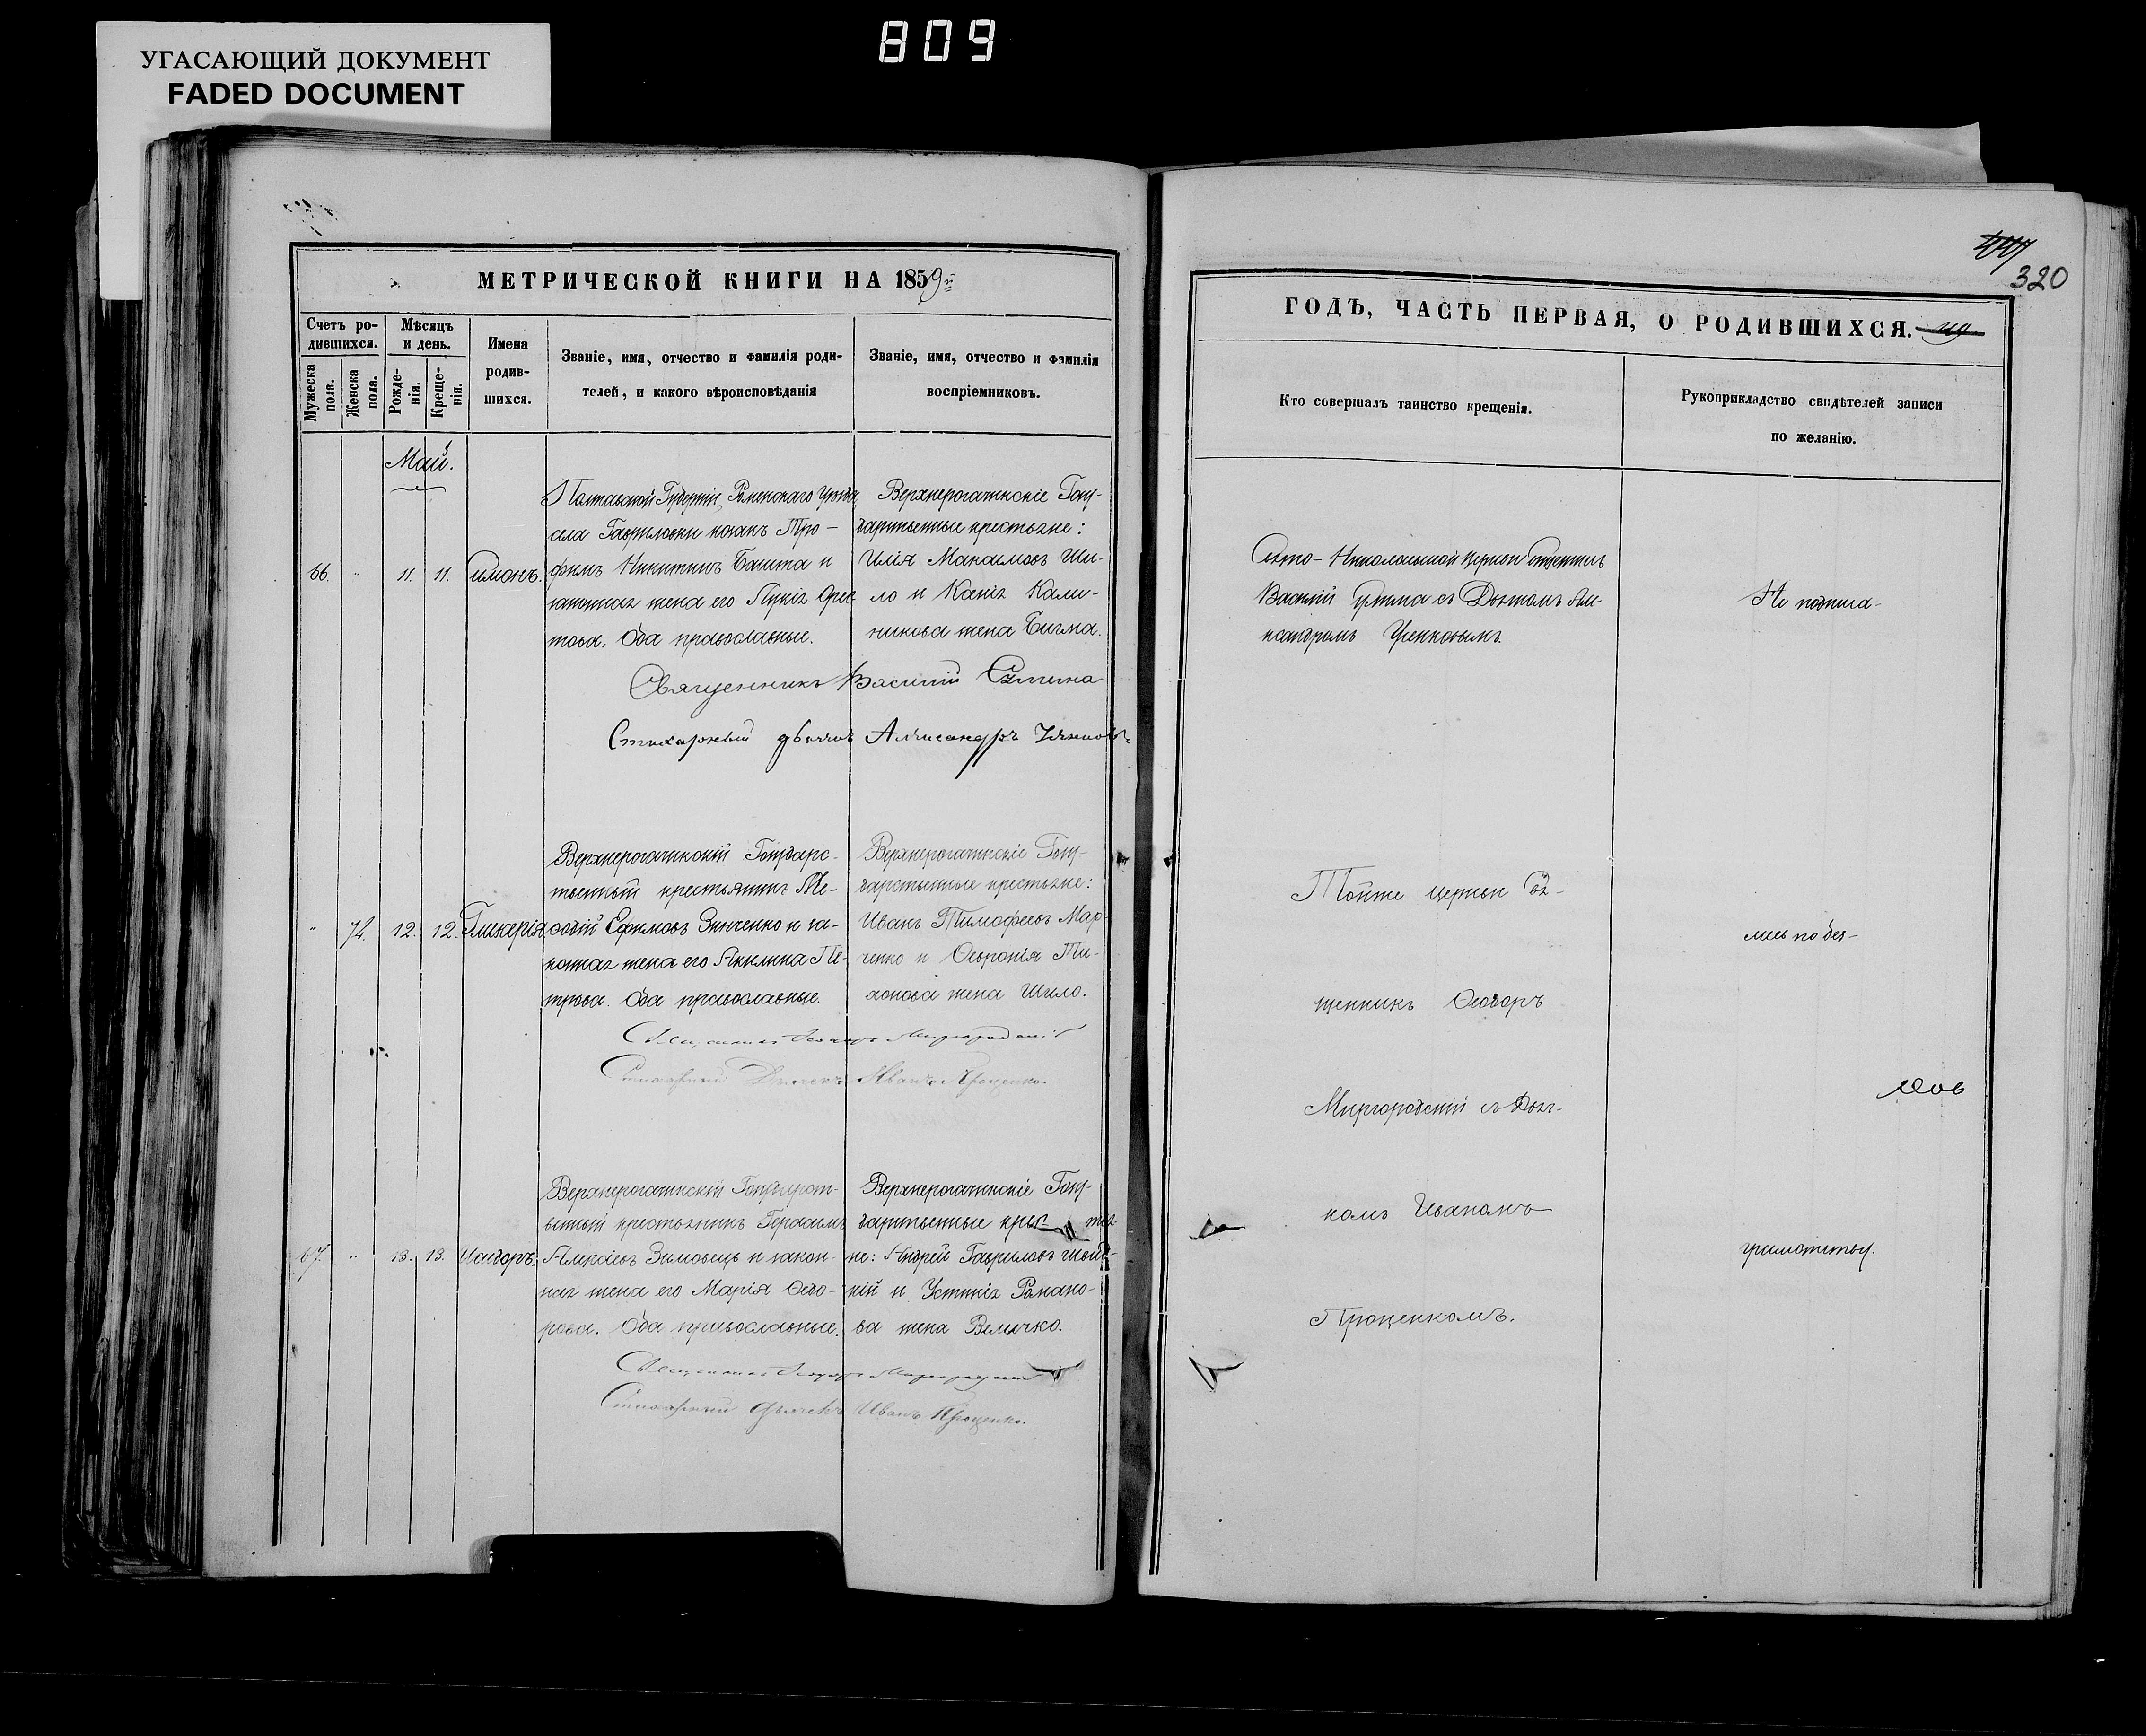 809
УГАСАЮЩИЙ ДОКУМЕНТ
FADED DOCUMENT
МЕТРИЧЕСКОЙ КНИГИ НА 1859й
Счетъ ро-
дившихся.
Мужеска
пола.
Женска
пола.
Мѣсяцъ
и день.
Рожде-
нія.
Креще-
нія.
Имена
родив-
шихся.
Званіе, имя, отчество и фамилія роди-
телей, и какого вѣроисповѣданія
Званіе, имя, отчество и фамилія
воспріемниковъ.
Май.
66.
"
11.
11.
Симонъ.
Полтавской Губерніи, Роменскаго Уѣзда
села Гавриловки козакъ Тро-
фимъ Никитинъ Башта и
законная жена его
това. Оба православные.
Верхнерогачинскіе Госу-
дарственные крестьяне:
Илія Максимовъ Ши-
ло и Ксенія Кали-
никова жена Бигма.
Священникъ Василій
Стихарный дьячокъ Александръ
"
74.
12.
12.
Гликерія
Верхнерогачинскій Государс-
твенный крестьянинъ Ме-
фодій Ефимовъ Зинченко и за-
конная жена его Акилина Пе-
трова. Оба православные.
Верхнерогачинскіе Госу-
дарственные крестьяне:
Иванъ Тимофеевъ Мар-
ченко и Февронія Ти-
хонова жена Шило.
Священникъ Феодоръ Миргородскій
Стихарный Дьячекъ Иванъ Проценко.
67.
"
13.
13.
Исидоръ.
Верхнерогачинскій Государст-
венный крестьянинъ Герасимъ
Алексѣевъ Зимовець и закон-
ная жена его Марія Федо-
рова. Оба православные.
Верхнерогачинскіе Госу-
дарственные крестья-
не: Андрей Гавриловъ
кій и Устинія Романо-
ва жена Величко.
Священникъ Феодоръ Миргородскій
Стихарный Дьячекъ Иванъ Проценко.
320
ГОДЪ, ЧАСТЬ ПЕРВАЯ, О РОДИВШИХСЯ.
Кто совершалъ таинство крещенія.
Рукоприкладство свидѣтелей записи
по желанію.
Свято-Николаевской церкви священникъ
Василій съ Дьячкомъ Але-
ксандромъ
Тойже церкви Свя-
щенникъ Феодоръ
Миргородскій съ Дьяч-
комъ Иваномъ
Проценкомъ.
Не подписа-
лись по без-
грамотству.